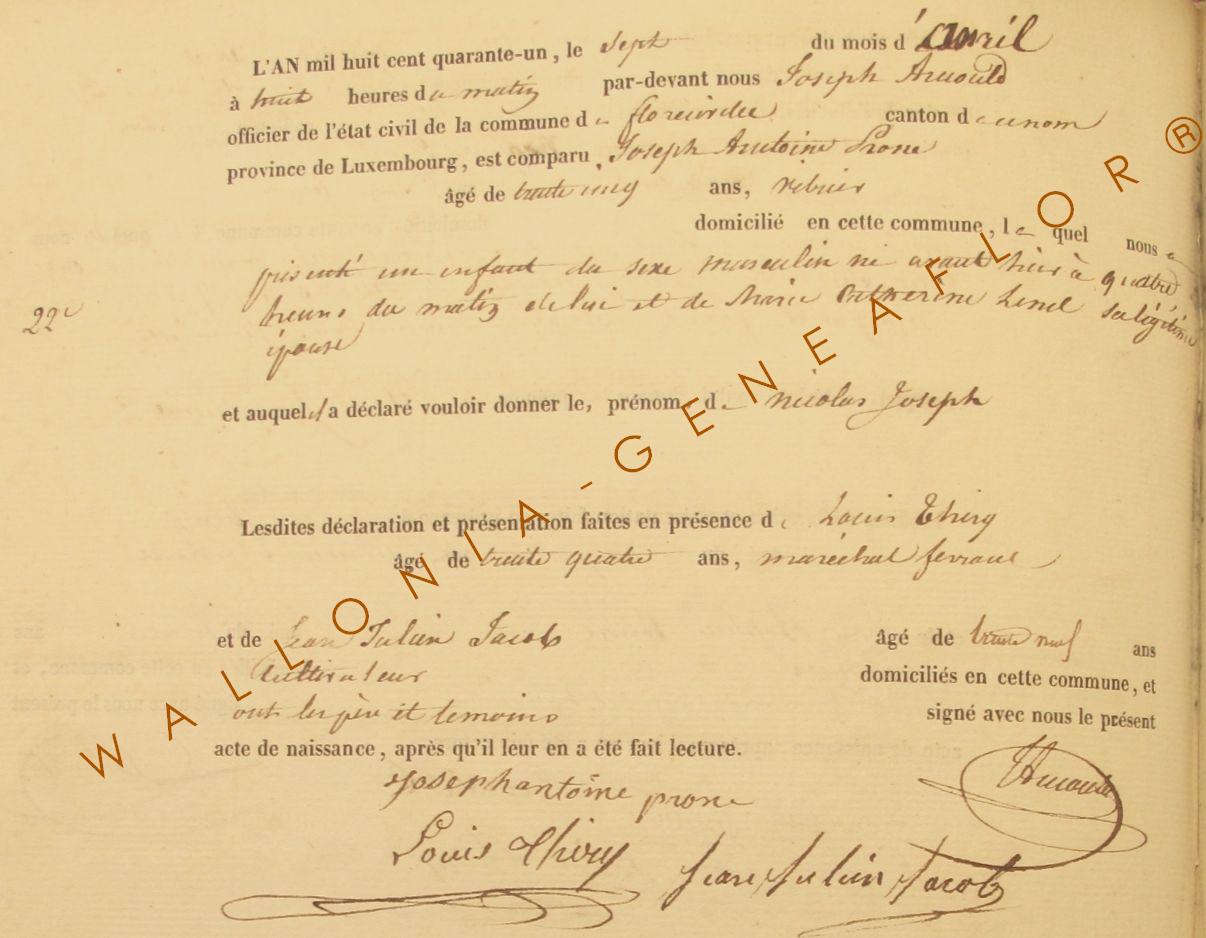 L'AN mil huit cent quarante-un, le sept du mois d'avril
à huit heures du matin par-devant nous Joseph Arnould
officier de l'état civil de la commune de canton d
province de Luxembourg, est comparu, Joseph Antoine Prone
âgé de trente cinq ans,
domicilié en cette commune, le quel nous a
présenté un enfant du sexe masculin né avant hier à quatre
22e
heures du matin de lui et de Marie Catherine sa légitime
épouse
et auquel il a déclaré vouloir donner le, prénom, de nicolas Joseph
Lesdites déclaration et présentation faites en présence de Louis Thiry
âgé de trente quatre ans, maréchal ferrant
et de Jean Julien Jacob âgé de trente neuf ans
Cultivateur domiciliés en cette commune, et
ont les père et temoins signé avec nous le présent
acte de naissance, après qu'il leur en a été fait lecture.
Josephantoine prone
Louis Thiry
Jean Julien Jacob
WALLONIA-GENEAFLOR ®